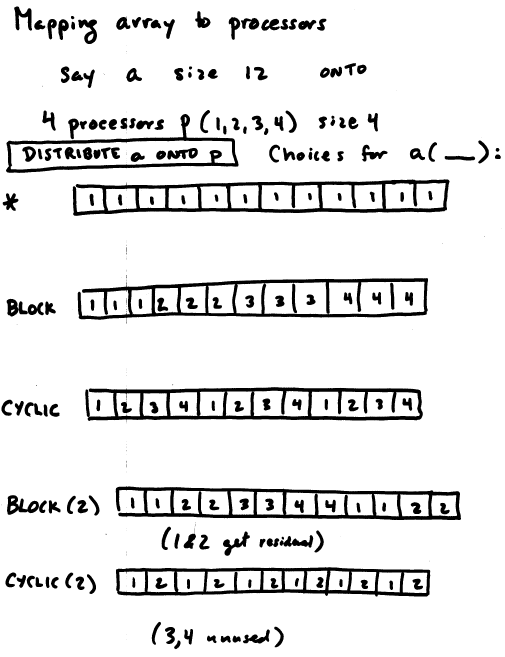 Mapping array to processors
Say a size 12 ONTO
4 processors p (1,2,3,4) size 4
DISTRIBUTE a ONTO p Choices for a(__):
* 1 1 1 1 1 1 1 1 1 1 1 1
BLOCK 1 1 1 2 2 2 3 3 3 4 4 4
CYCLIC 1 2 3 4 1 2 3 4 1 2 3 4
BLOCK (2) 1 1 2 2 3 3 4 4 1 1 2 2
(1&2 get residual)
CYCLIC (2) 1 2 1 2 1 2 1 2 1 2 1 2
(3,4 unused)